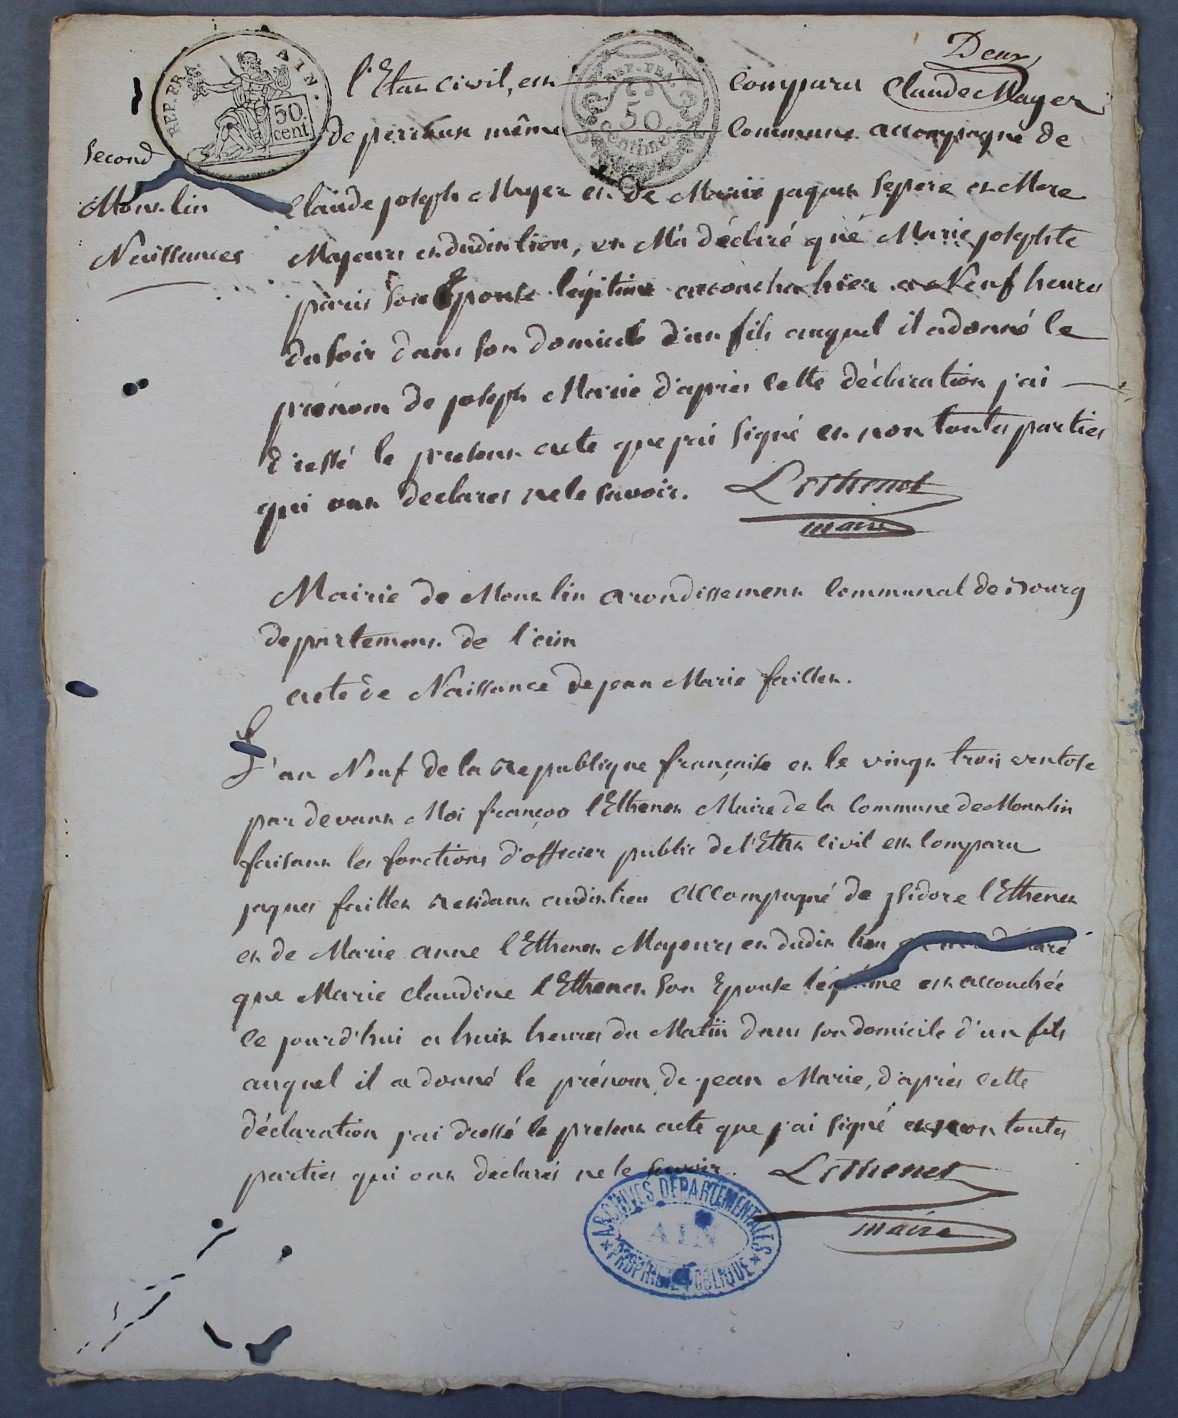 Deux
REP. FRA. AIN.
50. cent.
REP. FRA.
50
Centimes
l'Etat civil, est comparu Claude Mayer
de percieux même commune accompagné de
Second
Mons lin
Naissances
Claude joseph Mayer et de Marie jaquet se pere et Mere
Majeurs et dudit lieu, et M'a déclaré qué Marie josephte
paris son Epouse légitime accouchat hier a Neuf heures
du soir dans son domicile d'un fils auquel il a donné le
prénom de joseph Marie d'apries cette déclaration j'ai
d'ressé le present acte que j'ai signé et non toutes parties
qui ont declarés ne le savoir. L'ethenet
maire
Mairie de Mons lin arondissement Communal de Bourg
departement de l'ain
acte de Naissance de jean Marie faillet.
L'an Neuf de la republique française et le vingt trois ventose
par devant Moi françois l'Ethenet Maire de la Commune de Mons lin
faisant les fonctions d'officier public de l'Etat Civil est Comparu
jaques faillet residant audit lieu accompagné de jsidore l'Ethenet
et de Marie anne l'Ethenet Majeurs et dudit lieu et m'a déclaré
que Marie Claudine l'Ethenet son Epouse légitime est accouchée
ce jourd'hui a huit heures du Matin dans son domicile d'un fils
auquel il a donné le prénom de jean Marie, d'apriés cette
déclaration j'ai dressé le present acte que j'ai signé et non toutes
parties qui ont declarés ne le savoir. L'ethenet
maire
ARCHIVES DÉPARTEMENTALES
AIN
PROPRIÉTÉ PUBLIQUE